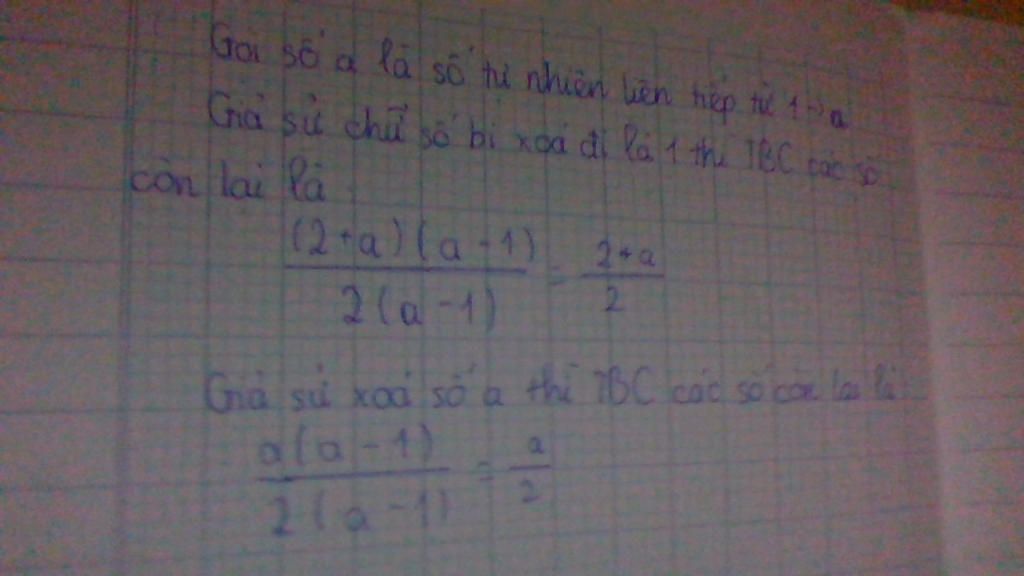 Gọi số a là số tự nhiên liên tiếp từ 1 → a
Giả sử chữ số bị xoá đi là 1 thì TBC các số
còn lại là
(2+a)(a-1) / 2(a-1) = 2+a / 2
Giả sử xoá số a thì TBC các số còn lại là
a(a-1) / 2(a-1) = a / 2